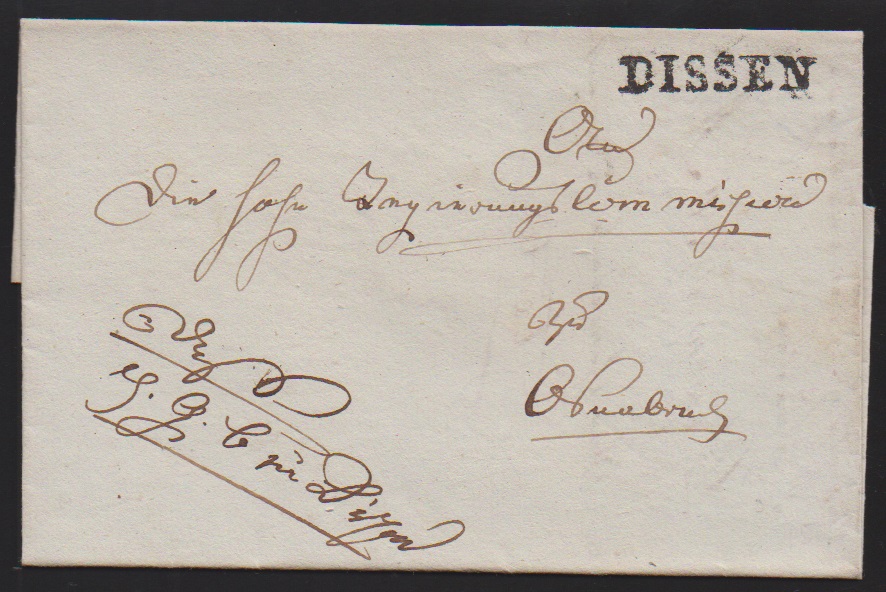 DISSEN
An
Die hohe Regierungs Commission
zu
Osnabrück
S. G. b
zu Dissen